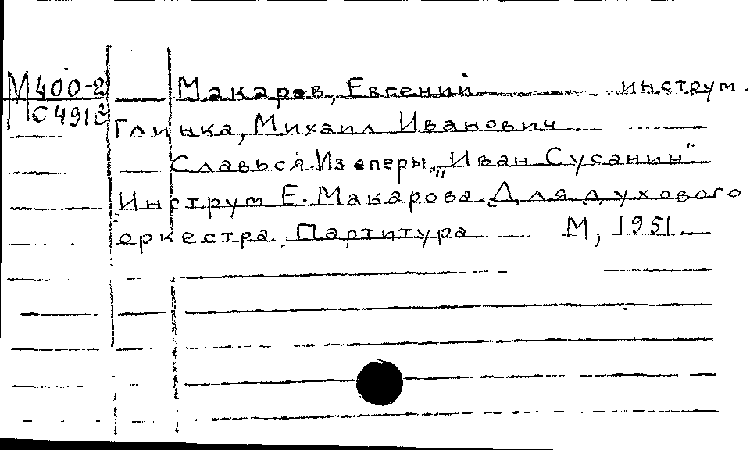 М400-2 Макаров, Евгений инструм.
С491 Глинка, Михаил Иванович
Славься. Из оперы „Иван Сусанин"
Инструм Е. Макарова. Для духового
оркестра. Партитура М, 1951.